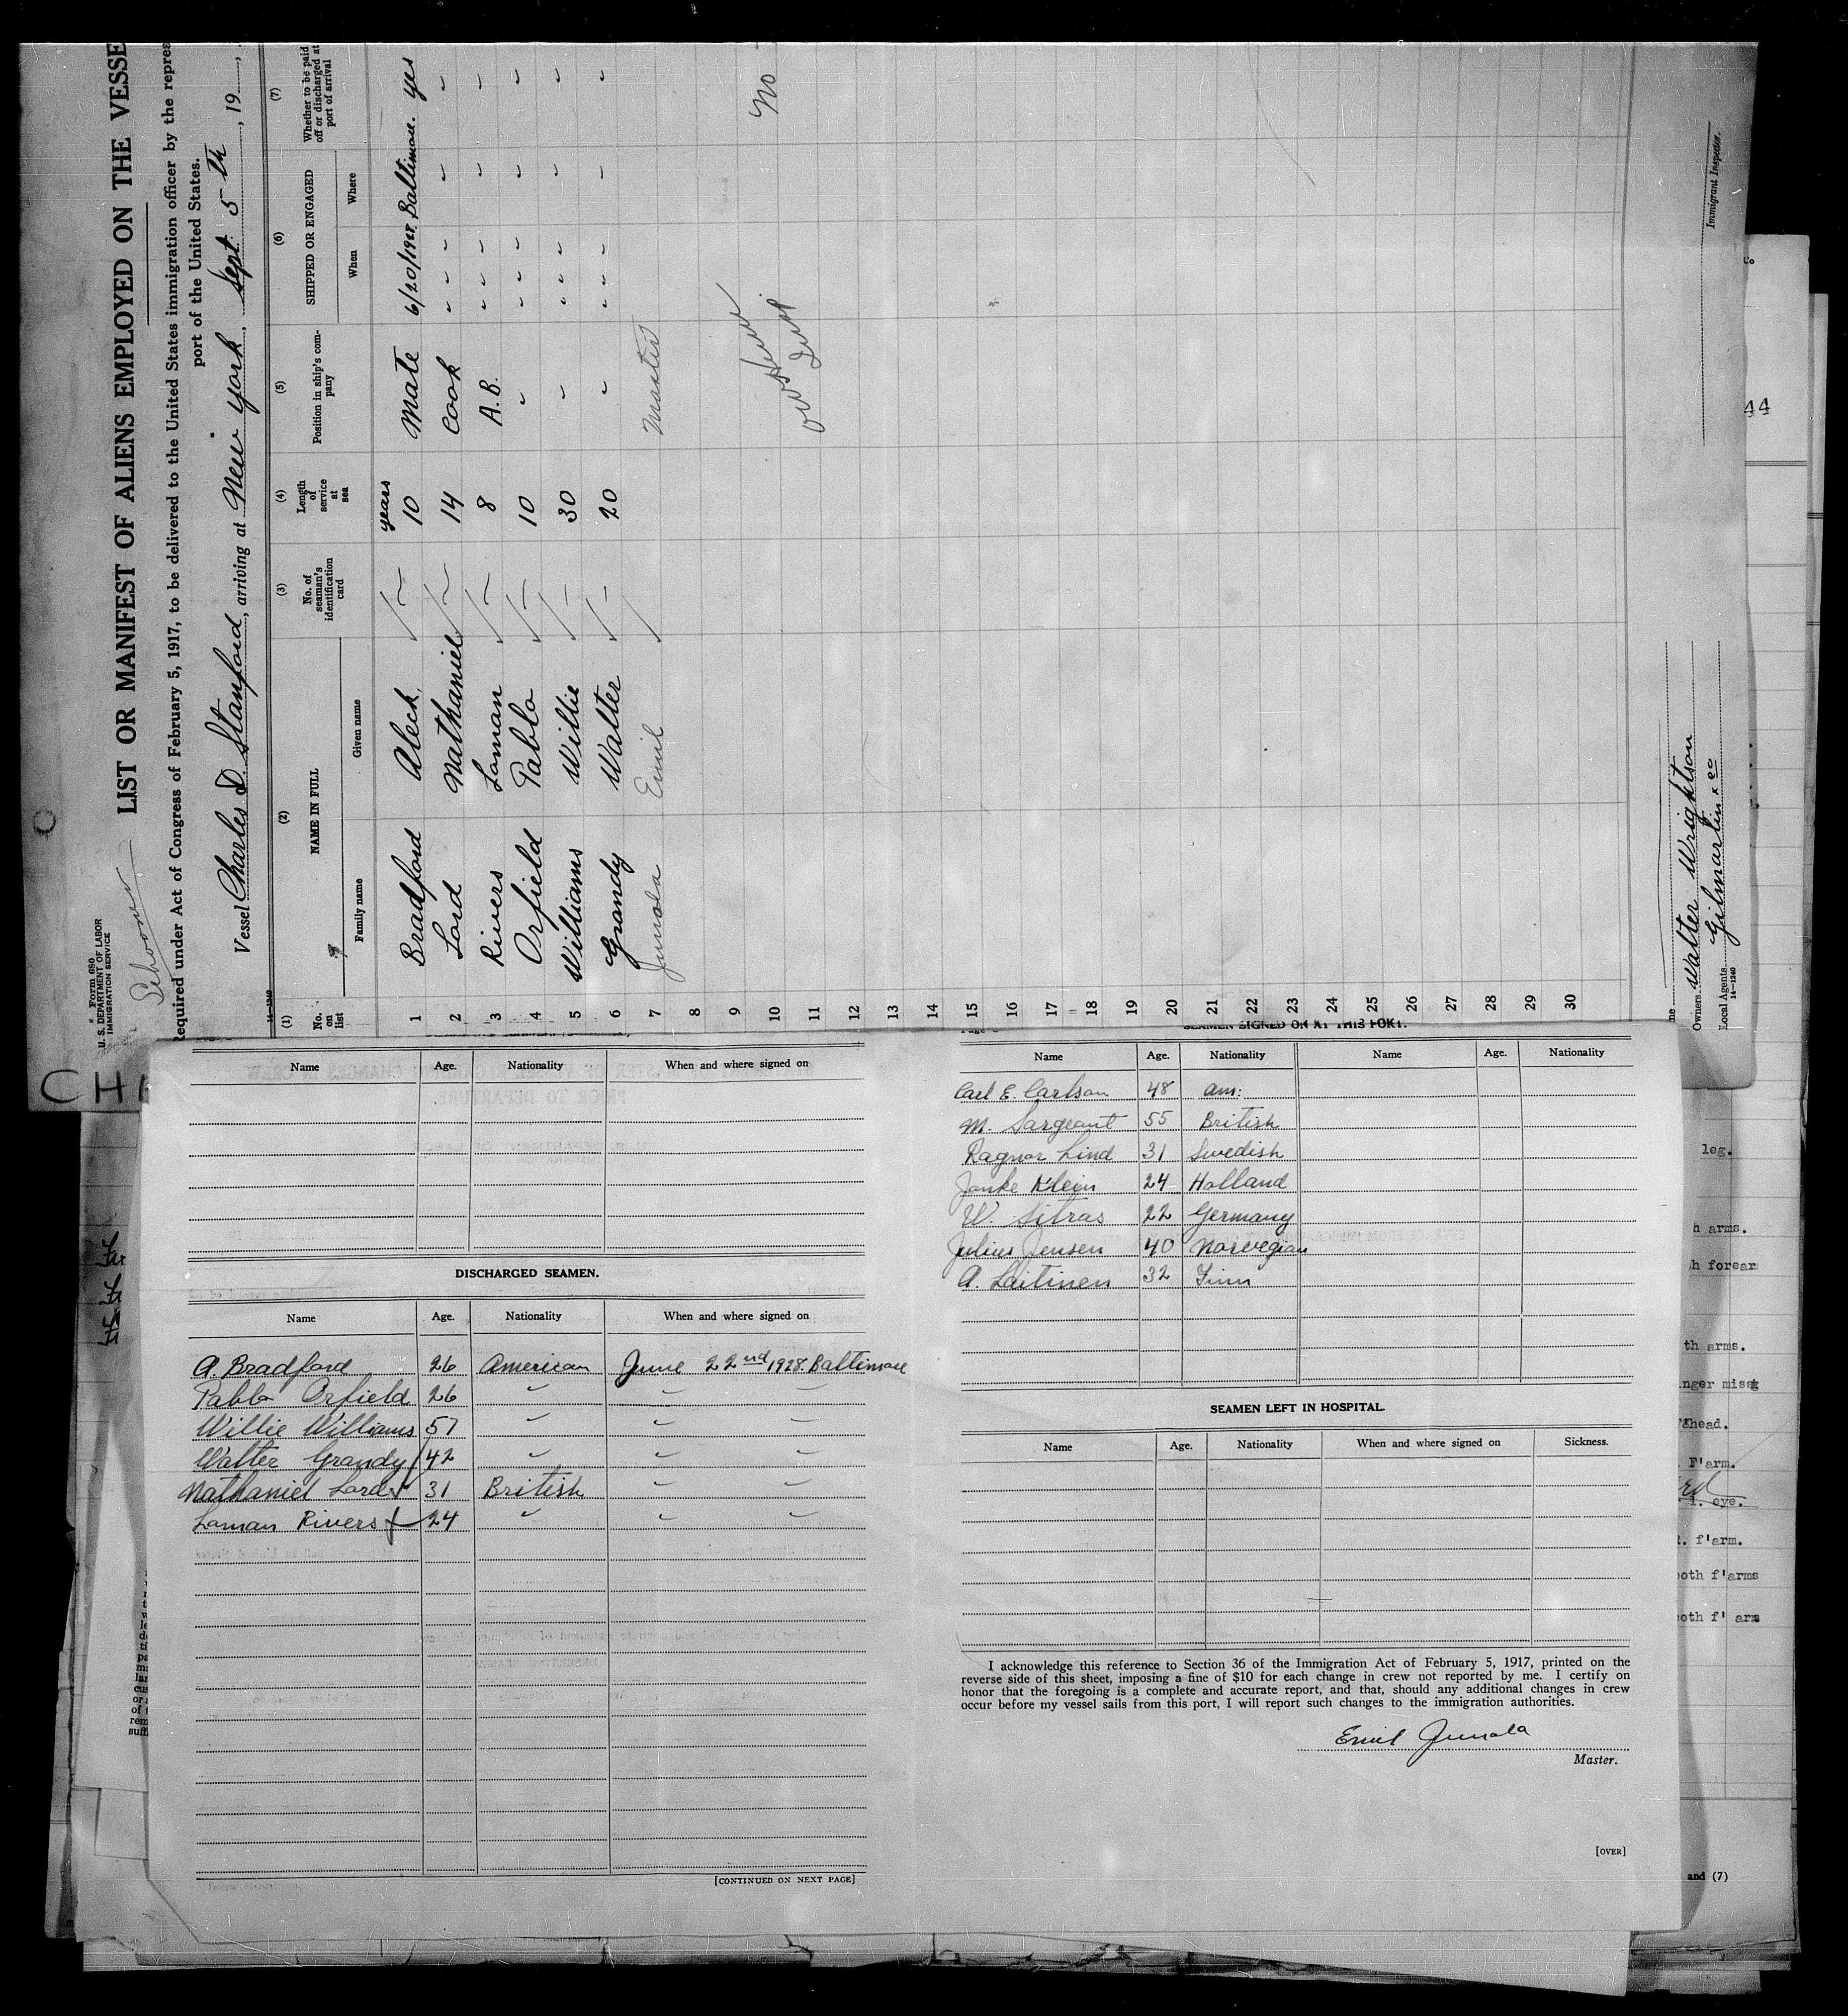 * Form 680
U. S. DEPARTMENT OF LABOR
IMMIGRATION SERVICE
Schooner
LIST OR MANIFEST OF ALIENS EMPLOYED ON THE VESSE
equired under Act of Congress of February 5, 1917, to be delivered to the United States immigration officer by the repres
port of the United States.
Vessel Charles D. Stanford, arriving at New York, Sept. 5th, 19
(1) (2) (3) (4) (5) (6) (7)
No. on list
NAME IN FULL
Family name Given name
No. of seaman's identification card
Length of service at sea
Position in ship's company
SHIPPED OR ENGAGED
When Where
Whether to be paid off or discharged at port of arrival
years
1 Bradford Aleck 10 Mate 6/20/1928 Baltimore. yes
2 Lord Nathaniel 14 Cook " " " " "
3 Rivers Loman 8 A.B. " " " " "
4 Orfield Pablo 10 " " " " " "
5 Williams Willie 30 " " " " " "
6 Grandy Walter 20 " " " " " "
7 Junola Emil Master
8
9
10 No
11
12
13
14
15
16
17
18
19
20
21
22
23
24
25
26
27
28
29
30
Owners Walter Wrightson
Local Agents Gilmartin & Co
14—1240
Immigrant Inspector.
44
CH
Name Age. Nationality When and where signed on
DISCHARGED SEAMEN.
Name Age. Nationality When and where signed on
A. Bradford 26 American June 22nd 1928. Baltimore
Pablo Orfield 26 " " "
Willie Williams 57 " " "
Walter Grandy 42 " " "
Nathaniel Lord 31 British " "
Loman Rivers 24 " " "
[CONTINUED ON NEXT PAGE]
SEAMEN SIGNED ON AT THIS PORT.
Name Age. Nationality Name Age. Nationality
Carl E. Carlson 48 Am:
M. Sargeant 55 British
Ragnar Lind 31 Swedish
Janke Klein 24 Holland
W. Sitras 22 Germany
Julius Jensen 40 Norwegian
A. Laitinen 32 Finn
SEAMEN LEFT IN HOSPITAL.
Name Age. Nationality When and where signed on Sickness.
I acknowledge this reference to Section 36 of the Immigration Act of February 5, 1917, printed on the
reverse side of this sheet, imposing a fine of $10 for each change in crew not reported by me. I certify on
honor that the foregoing is a complete and accurate report, and that, should any additional changes in crew
occur before my vessel sails from this port, I will report such changes to the immigration authorities.
Emil Junola
Master.
[OVER]
leg.
h arms.
h forear
th arms.
nger missg
head.
F'arm.
eye.
f'arm.
oth f'arms
oth f' arm
and (7)